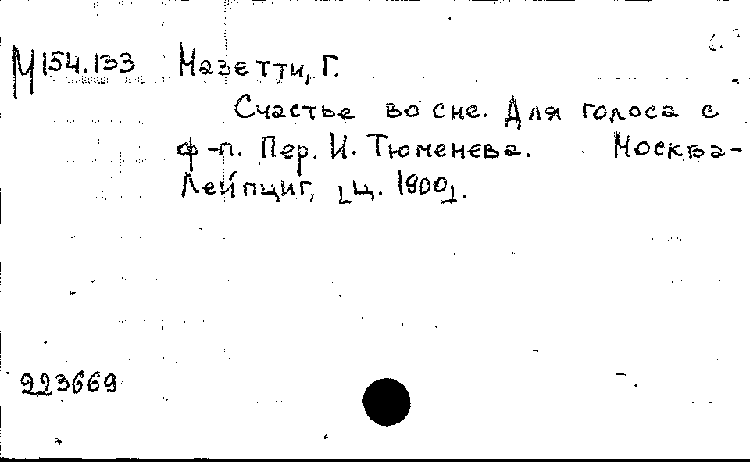 М154.133 Мазетти, Г.
Счастье во сне. Для голоса с
ф-п. Пер. И. Тюменева. Москва-
Лейпциг, [ц. 1900].
223669